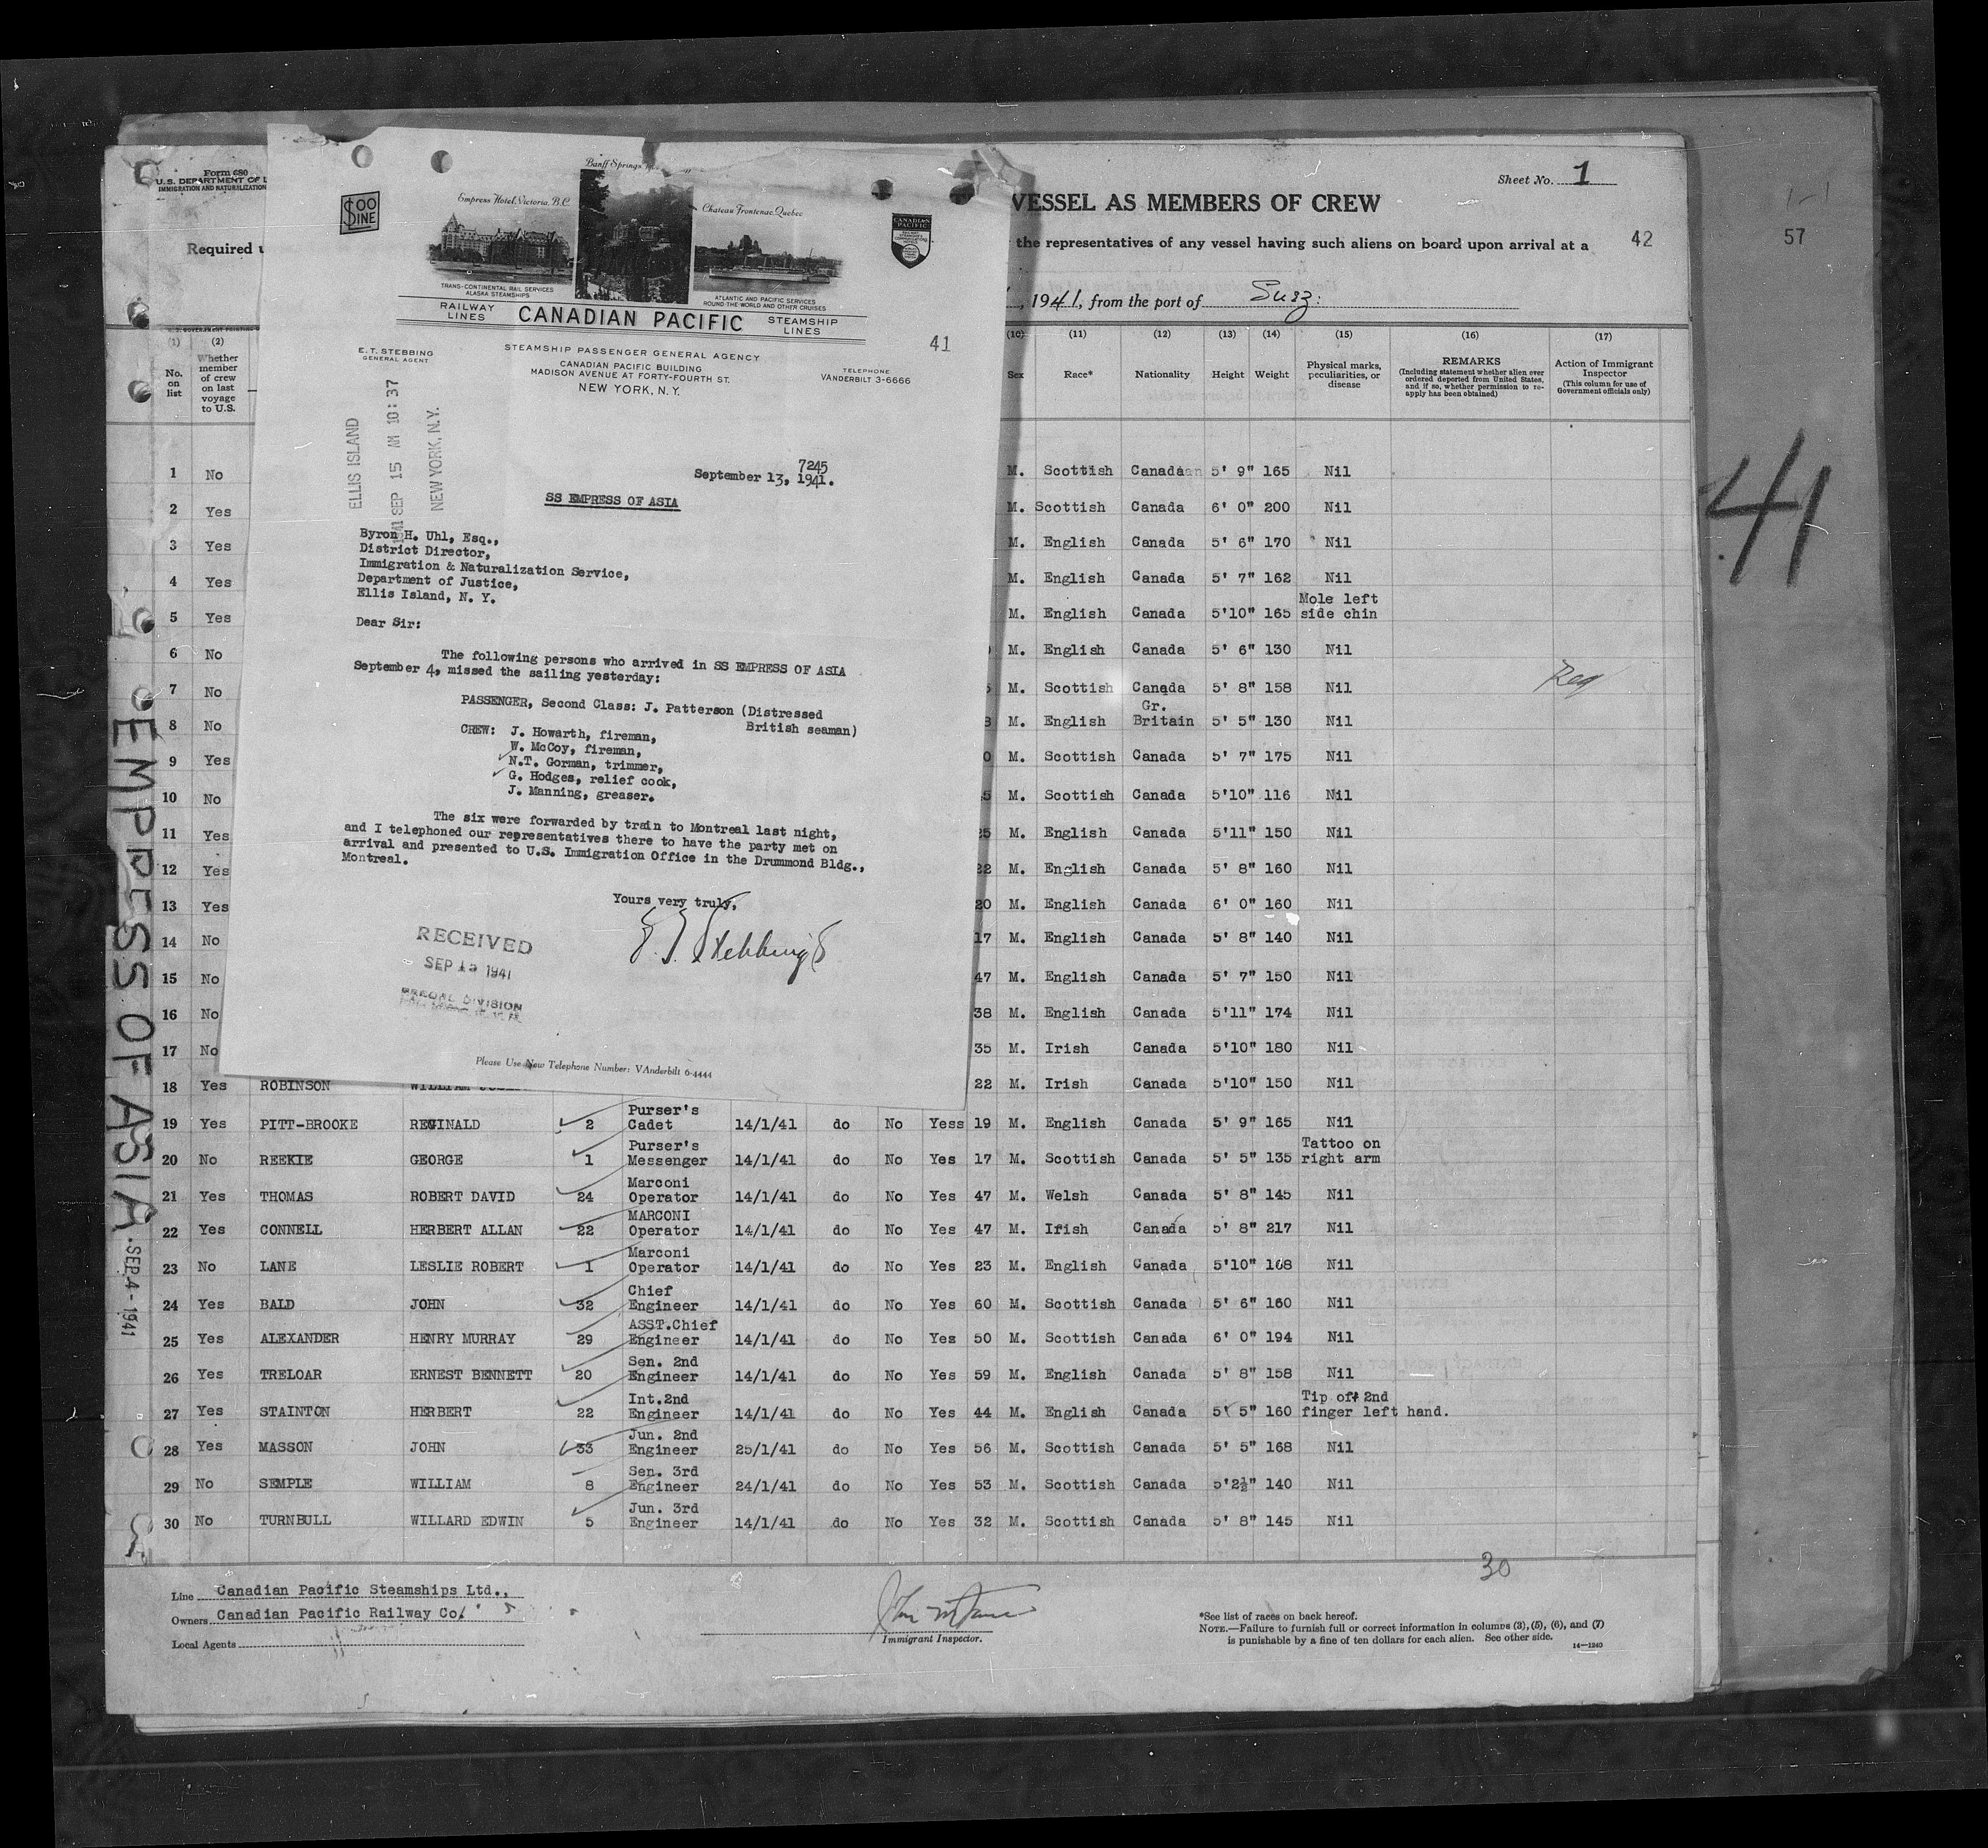 Form 680
U.S. DEPARTMENT OF L
IMMIGRATION AND NATURALIZATION
Required u
Sheet No. 1
VESSEL AS MEMBERS OF CREW
the representatives of any vessel having such aliens on board upon arrival at a
42
57
, 1941, from the port of Suez:
41
SOO LINE
Banff Springs
Empress Hotel, Victoria, B.C.
Chateau Frontenac, Quebec
TRANS-CONTINENTAL RAIL SERVICES
ALASKA STEAMSHIPS
ATLANTIC AND PACIFIC SERVICES
ROUND THE WORLD AND OTHER CRUISES
CANADIAN PACIFIC
RAILWAY LINES CANADIAN PACIFIC STEAMSHIP LINES
41
E. T. STEBBING
GENERAL AGENT
STEAMSHIP PASSENGER GENERAL AGENCY
CANADIAN PACIFIC BUILDING
MADISON AVENUE AT FORTY-FOURTH ST.
NEW YORK, N. Y.
TELEPHONE
VANDERBILT 3-6666
ELLIS ISLAND
1941 SEP 15 AM 10:37
NEW YORK, N.Y.
7245
September 13, 1941.
SS EMPRESS OF ASIA
Byron H. Uhl, Esq.,
District Director,
Immigration & Naturalization Service,
Department of Justice,
Ellis Island, N. Y.
Dear Sir:
The following persons who arrived in SS EMPRESS OF ASIA
September 4, missed the sailing yesterday:
PASSENGER, Second Class: J. Patterson (Distressed
British seaman)
CREW: J. Howarth, fireman,
W. McCoy, fireman,
N.T. Gorman, trimmer,
G. Hodges, relief cook,
J. Manning, greaser.
The six were forwarded by train to Montreal last night,
and I telephoned our representatives there to have the party met on
arrival and presented to U.S. Immigration Office in the Drummond Bldg.,
Montreal.
Yours very truly,
E. T. Stebbing
RECEIVED
SEP 15 1941
DIVISION
Please Use New Telephone Number: VAnderbilt 6-4444
(1) (2) (10) (11) (12) (13) (14) (15) (16) (17)
No. on list
Whether member of crew on last voyage to U.S.
Sex Race* Nationality Height Weight
Physical marks, peculiarities, or disease
REMARKS
(Including statement whether alien ever ordered deported from United States, and if so, whether permission to reapply has been obtained)
Action of Immigrant Inspector
(This column for use of Government officials only)
1 No M. Scottish Canadaan 5' 9" 165 Nil
2 Yes M. Scottish Canada 6' 0" 200 Nil
3 Yes M. English Canada 5' 6" 170 Nil
4 Yes M. English Canada 5' 7" 162 Nil
5 Yes M. English Canada 5'10" 165 Mole left side chin
6 No M. English Canada 5' 6" 130 Nil
7 No M. Scottish Canada 5' 8" 158 Nil
8 No M. English Gr. Britain 5' 5" 130 Nil
9 Yes M. Scottish Canada 5' 7" 175 Nil
10 No M. Scottish Canada 5'10" 116 Nil
11 Yes M. English Canada 5'11" 150 Nil
12 Yes 22 M. English Canada 5' 8" 160 Nil
13 Yes 20 M. English Canada 6' 0" 160 Nil
14 No 17 M. English Canada 5' 8" 140 Nil
15 No 47 M. English Canada 5' 7" 150 Nil
16 No 38 M. English Canada 5'11" 174 Nil
17 No 35 M. Irish Canada 5'10" 180 Nil
18 Yes ROBINSON WILLIAM 22 M. Irish Canada 5'10" 150 Nil
19 Yes PITT-BROOKE REGINALD 2 Purser's Cadet 14/1/41 do No Yess 19 M. English Canada 5' 9" 165 Nil
20 No REEKIE GEORGE 1 Purser's Messenger 14/1/41 do No Yes 17 M. Scottish Canada 5' 5" 135 Tattoo on right arm
21 Yes THOMAS ROBERT DAVID 24 Marconi Operator 14/1/41 do No Yes 47 M. Welsh Canada 5' 8" 145 Nil
22 Yes CONNELL HERBERT ALLAN 22 MARCONI Operator 14/1/41 do No Yes 47 M. Irish Canada 5' 8" 217 Nil
23 No LANE LESLIE ROBERT 1 Marconi Operator 14/1/41 do No Yes 23 M. English Canada 5'10" 168 Nil
24 Yes BALD JOHN 32 Chief Engineer 14/1/41 do No Yes 60 M. Scottish Canada 5' 6" 160 Nil
25 Yes ALEXANDER HENRY MURRAY 29 ASST.Chief Engineer 14/1/41 do No Yes 50 M. Scottish Canada 6' 0" 194 Nil
26 Yes TRELOAR ERNEST BENNETT 20 Sen. 2nd Engineer 14/1/41 do No Yes 59 M. English Canada 5' 8" 158 Nil
27 Yes STAINTON HERBERT 22 Int.2nd Engineer 14/1/41 do No Yes 44 M. English Canada 5' 5" 160 Tip off 2nd finger left hand.
28 Yes MASSON JOHN 33 Jun. 2nd Engineer 25/1/41 do No Yes 56 M. Scottish Canada 5' 5" 168 Nil
29 No SEMPLE WILLIAM 8 Sen. 3rd Engineer 24/1/41 do No Yes 53 M. Scottish Canada 5'2½" 140 Nil
30 No TURNBULL WILLARD EDWIN 5 Jun. 3rd Engineer 14/1/41 do No Yes 32 M. Scottish Canada 5' 8" 145 Nil
30
EMPRESS OF ASIA SEP 4 - 1941
Line Canadian Pacific Steamships Ltd.,
Owners Canadian Pacific Railway Co.
Local Agents
Immigrant Inspector.
*See list of races on back hereof.
NOTE.—Failure to furnish full or correct information in columns (3), (5), (6), and (7)
is punishable by a fine of ten dollars for each alien. See other side.
14—1240